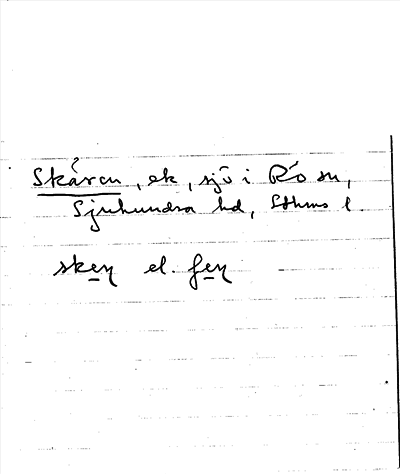 Skären, ek, sjö i Rö sn,
Sjuhundra hd, Sthms l.
skeɳ el. ʃeɳ